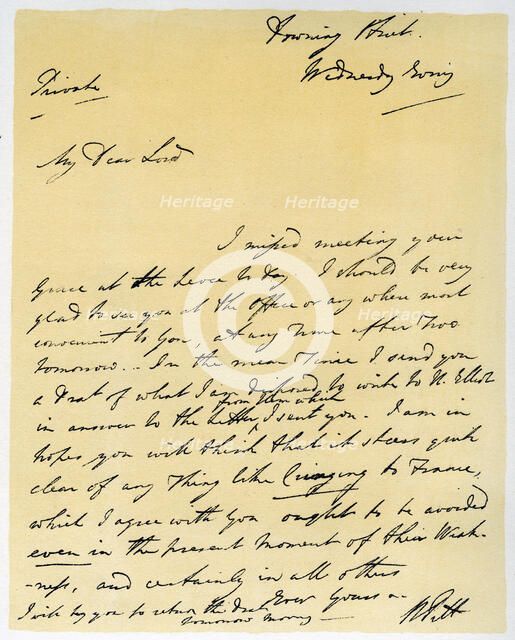 Downing Street.
Wednesday Eving
Private
My Dear Lord
I missed meeting your
Grace at the Levee to Day. I should be very
glad to see you at the office or any where most
convenient to you, at any Time after Two
tomorrow.. In the mean Time I send you
a Drat of what I am disposed to write to H. Elliot
in answer to the Letter from him which I sent you. I am in
hopes you will think that it steers quite
clear of any Thing like Cringing to France,
which I agree with you ought to be avoided
even in the present Moment of their Weak-
-ness, and certainly in all others
Ever yours
I will beg you to return the Drat
tomorrow Morng
W Pitt
Heritage
Heritage
Heritage
Heritage
Heritage
Heritage